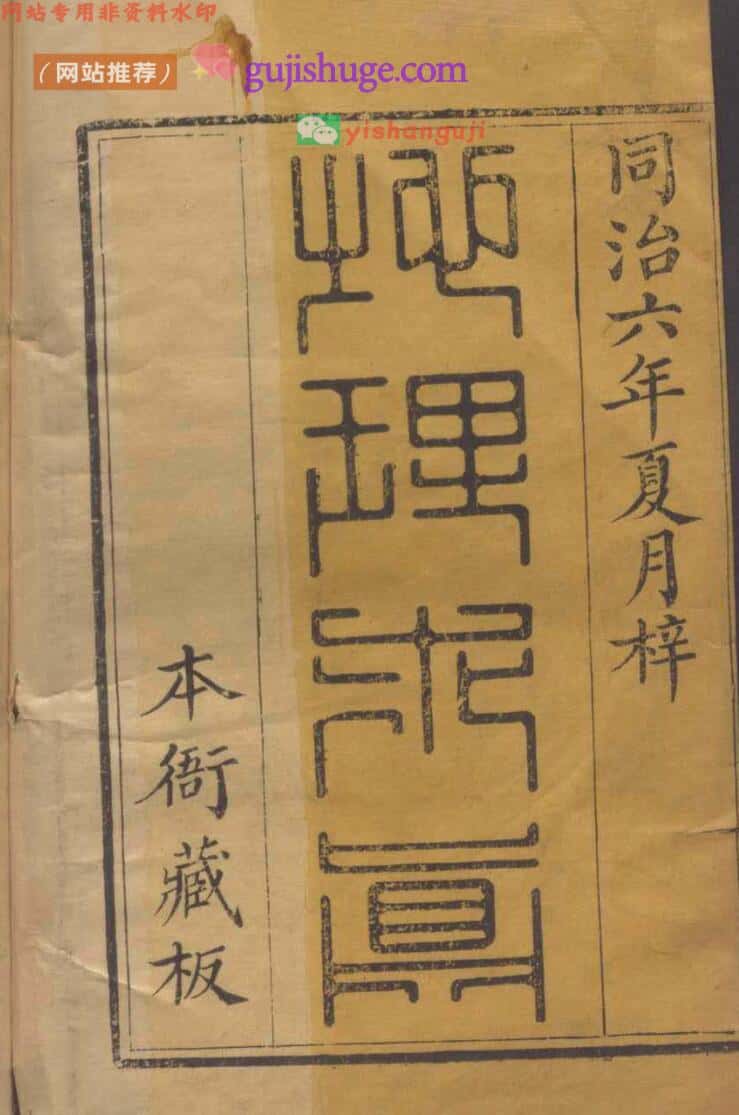 网站专用非资料水印
(网站推荐)
gujishuge.com
yishanguji
同治六年夏月梓
地理求真
本衙藏板